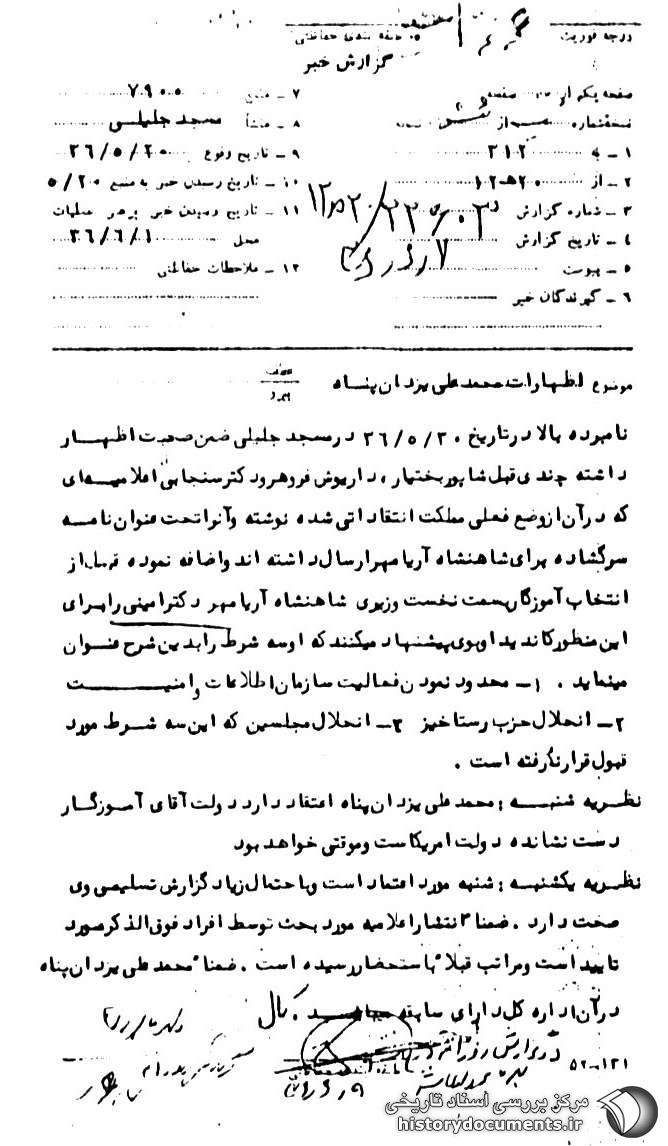 درجه فوریت
طبقه بندی حفاظتی
گزارش خبر
صفحه یکم از صفحه
نسخه شماره از نسخه
۱ - به ۳۱۲
۲ - از ۲۰ه۱۲
۳ - شماره گزارش
۴ - تاریخ گزارش
۵ - پیوست
۶ - گیرندگان خبر
۷ - منبع ۷۹۰۰
۸ - منشأ مسجد جلیلی
۹ - تاریخ وقوع ۳۶/۵/۲۰
۱۰ - تاریخ رسیدن خبر به منبع ۵/۲۰
۱۱ - تاریخ رسیدن خبر به رهبر عملیات
محل ۳۶/۶/۱
۱۲ - ملاحظات حفاظتی
موضوع اظهارات محمد علی یزدان پناه
عطف
پیرو
نامبرده بالا در تاریخ ۳۶/۵/۲۰ در مسجد جلیلی ضمن صحبت اظهار
داشته چندی قبل شاپور بختیار ، داریوش فروهر و دکتر سنجابی اعلامیه ای
که در آن از وضع فعلی مملکت انتقاداتی شده نوشته و آنرا تحت عنوان نامه
سرگشاده برای شاهنشاه آریامهر ارسال داشته اند و اضافه نموده قبل از
انتخاب آموزگار بسمت نخست وزیری شاهنشاه آریامهر دکتر امینی را برای
این منظور کاندید او بوی پیشنهاد میکنند که او سه شرط را بدین شرح عنوان
مینماید . ۱ - محدود نمودن فعالیت سازمان اطلاعات و امنیت
۲ - انحلال حزب رستاخیز ۳ - انحلال مجلسین که این سه شرط مورد
قبول قرار نگرفته است .
نظریه شنبه : محمد علی یزدان پناه اعتقاد دارد دولت آقای آموزگار
دست نشانده دولت امریکاست و موقتی خواهد بود
نظریه یکشنبه : شنبه مورد اعتماد است و باحتمال زیاد گزارش تسلیمی وی
صحت دارد . ضمنا" انتشار اعلامیه مورد بحث توسط افراد فوق الذکر مورد
تایید است و مراتب قبلا" باستحضار رسیده است . ضمنا" محمد علی یزدان پناه
در آن اداره کل دارای سابقه میباشد .
۵۲-۱۲۱
مرکز بررسی اسناد تاریخی
historydocuments.ir